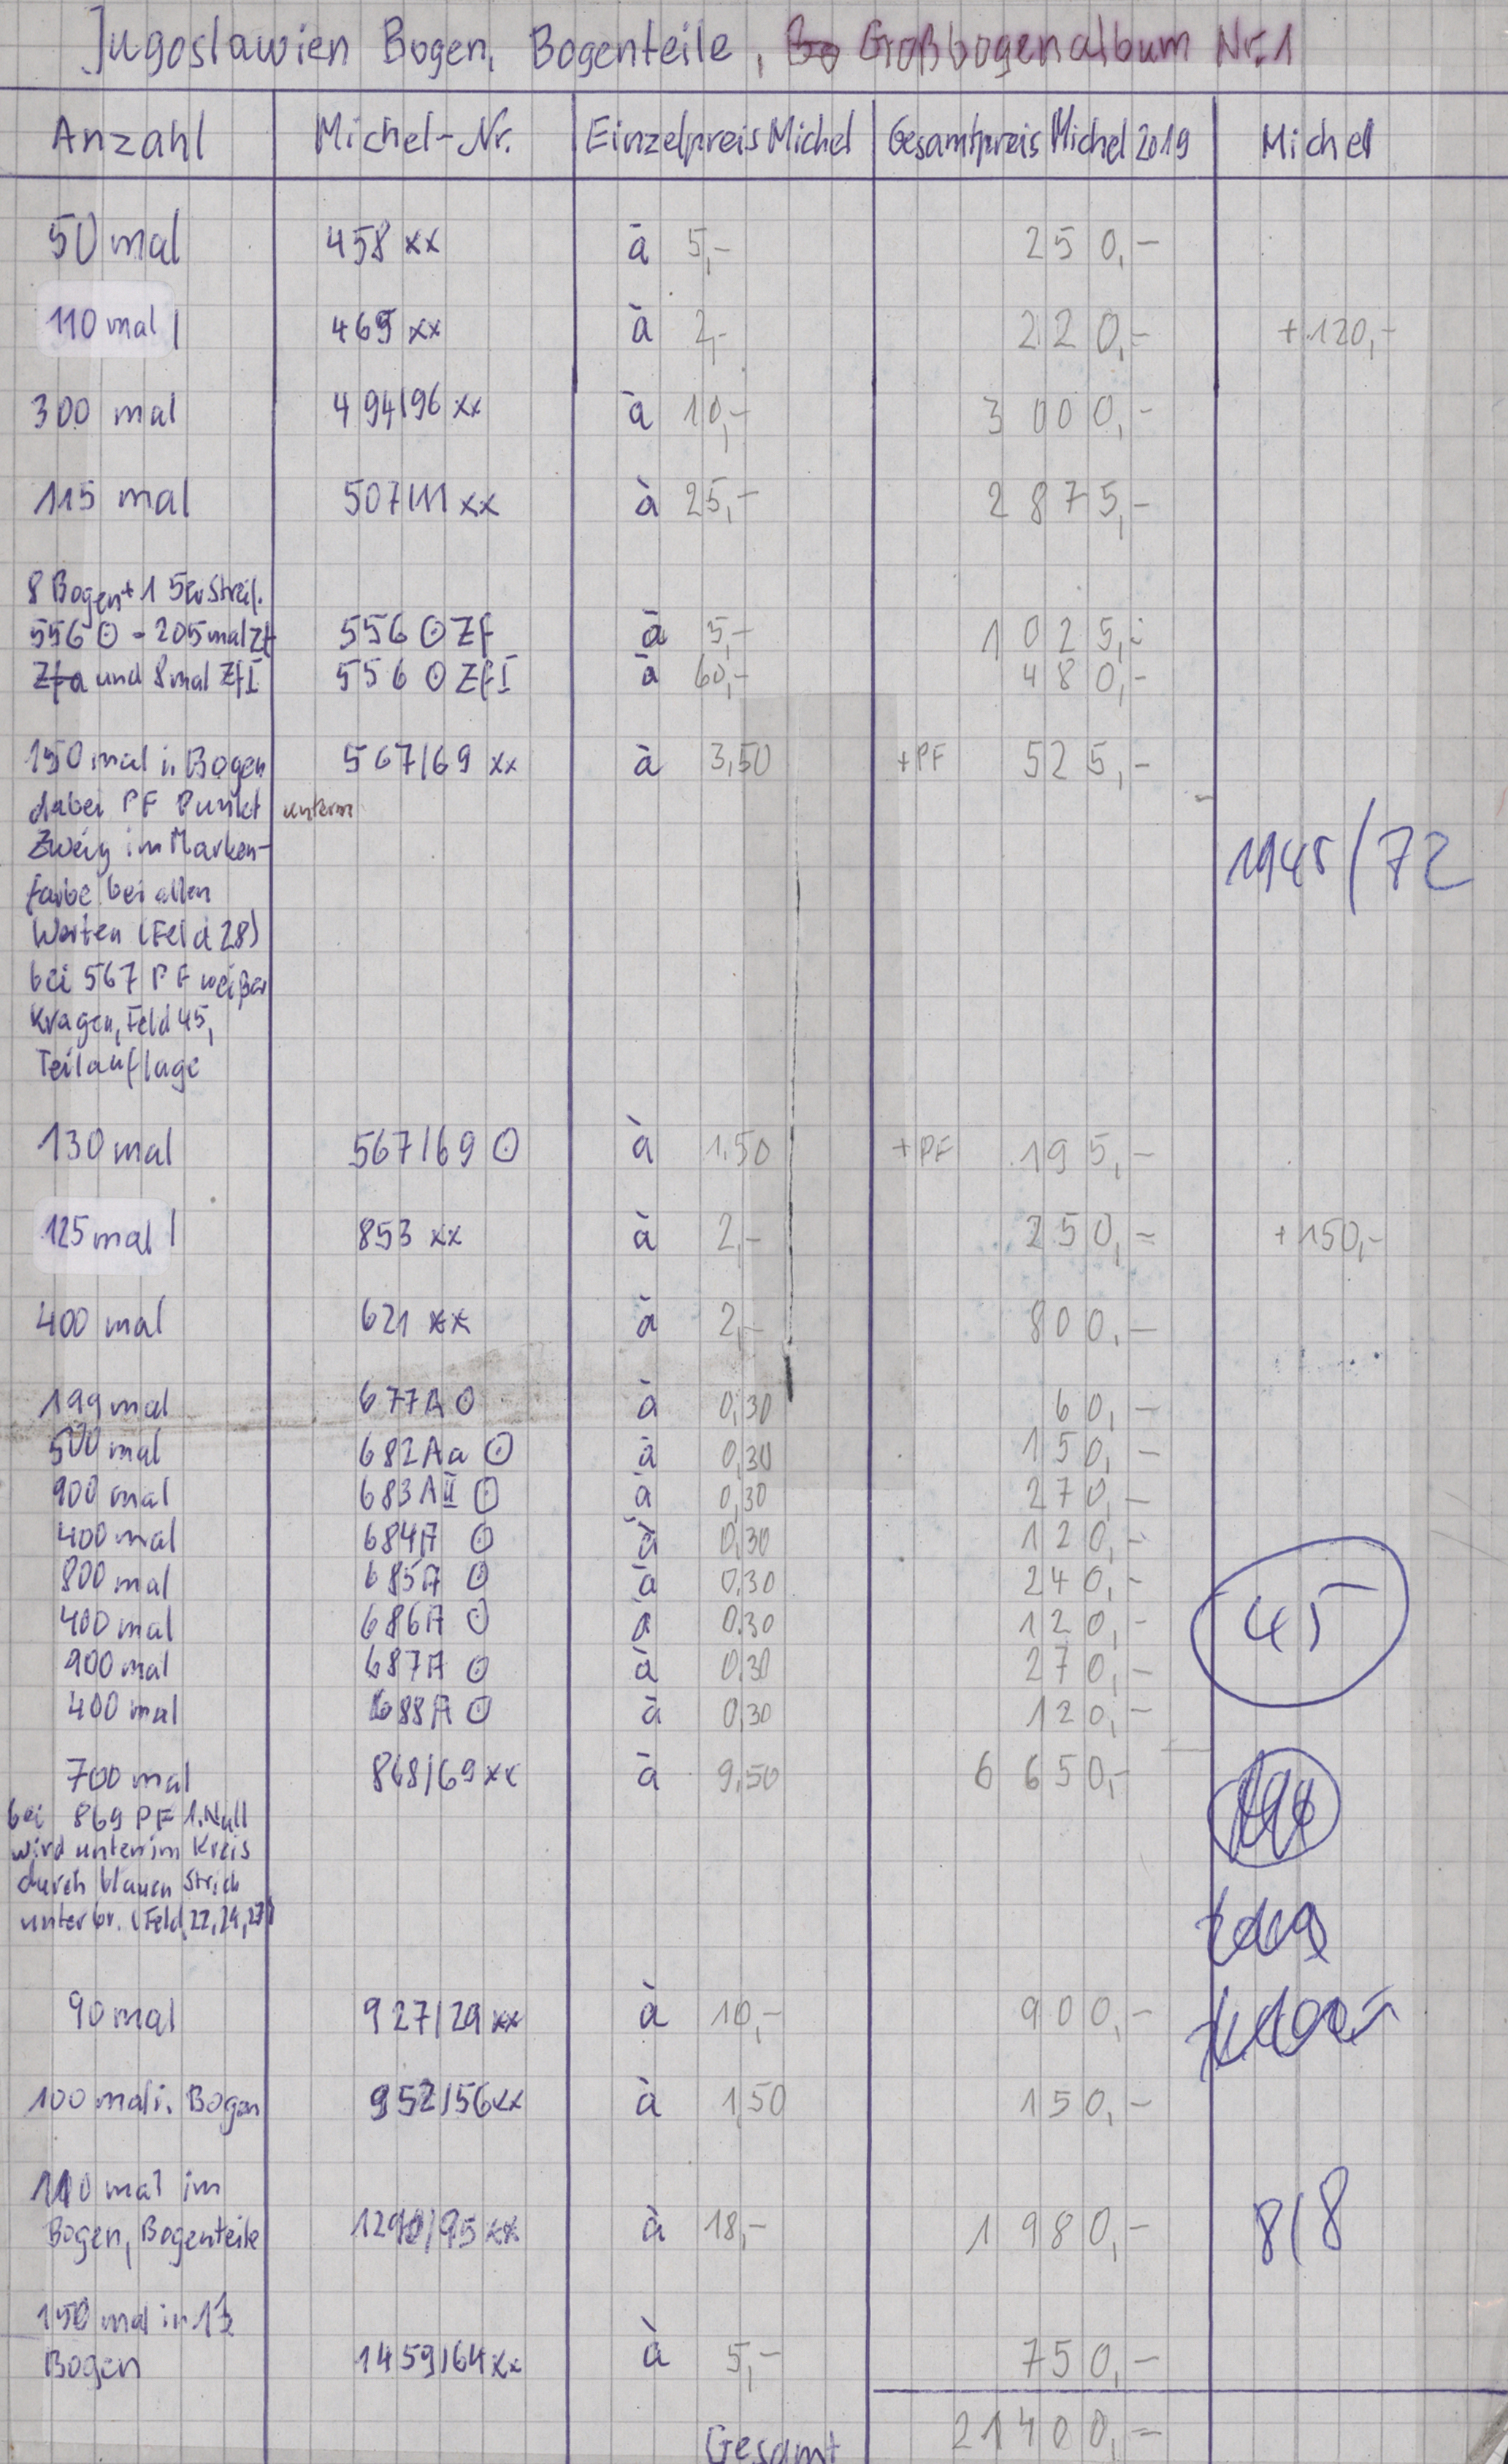 Jugoslawien Bogen, Bogenteile, Großbogenalbum Nr.1
Anzahl Michel-Nr. Einzelpreis Michel Gesamtpreis Michel 2019 Michel
50 mal 458 xx à 5,- 250,-
110 mal 469 xx à 2,- 220,- +120,-
300 mal 494/96 xx à 10,- 3 000,-
115 mal 507/11 xx à 25,- 2 875,-
8 Bogen + 1 5er Streif.
556 ⊙ - 205 mal Zf 556 ⊙ ZF à 5,- 1 025,-
Zfa und 8 mal Zf I 556 ⊙ Zf I à 60,- 480,-
150 mal i. Bogen 567/69 xx à 3,50 +PF 525,-
dabei PF Punkt unterm
Zweig im Marken- 1945/72
farbe bei allen
Werten (Feld 28)
bei 567 PF weißer
Kragen, Feld 45,
Teilauflage
130 mal 567/69 ⊙ à 1,50 +PF 195,-
125 mal 853 xx à 2,- 250,- +150,-
400 mal 621 xx à 2,- 800,-
199 mal 677A ⊙ à 0,30 60,-
500 mal 682Aa ⊙ à 0,30 150,-
900 mal 683AII ⊙ à 0,30 270,-
400 mal 684A ⊙ à 0,30 120,-
800 mal 685A ⊙ à 0,30 240,-
400 mal 686A ⊙ à 0,30 120,- 45
900 mal 687A ⊙ à 0,30 270,-
400 mal 688A ⊙ à 0,30 120,-
700 mal 868/69 xx à 9,50 6 650,-
bei 869 PF 1. Null
wird unten im Kreis
durch blauen Strich
unterbr. (Feld 22, 24, 27)
90 mal 927/29 xx à 10,- 900,-
100 mal i. Bogen 952/56 xx à 1,50 150,-
110 mal im
Bogen, Bogenteile 1290/95 xx à 18,- 1 980,- 8/8
150 mal in
Bogen 1459/64 xx à 5,- 750,-
Gesamt 21400,-